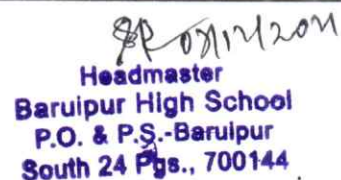 Headmaster
Baruipur High School
P.O. & P.S.-Baruipur
South 24 Pgs., 700144